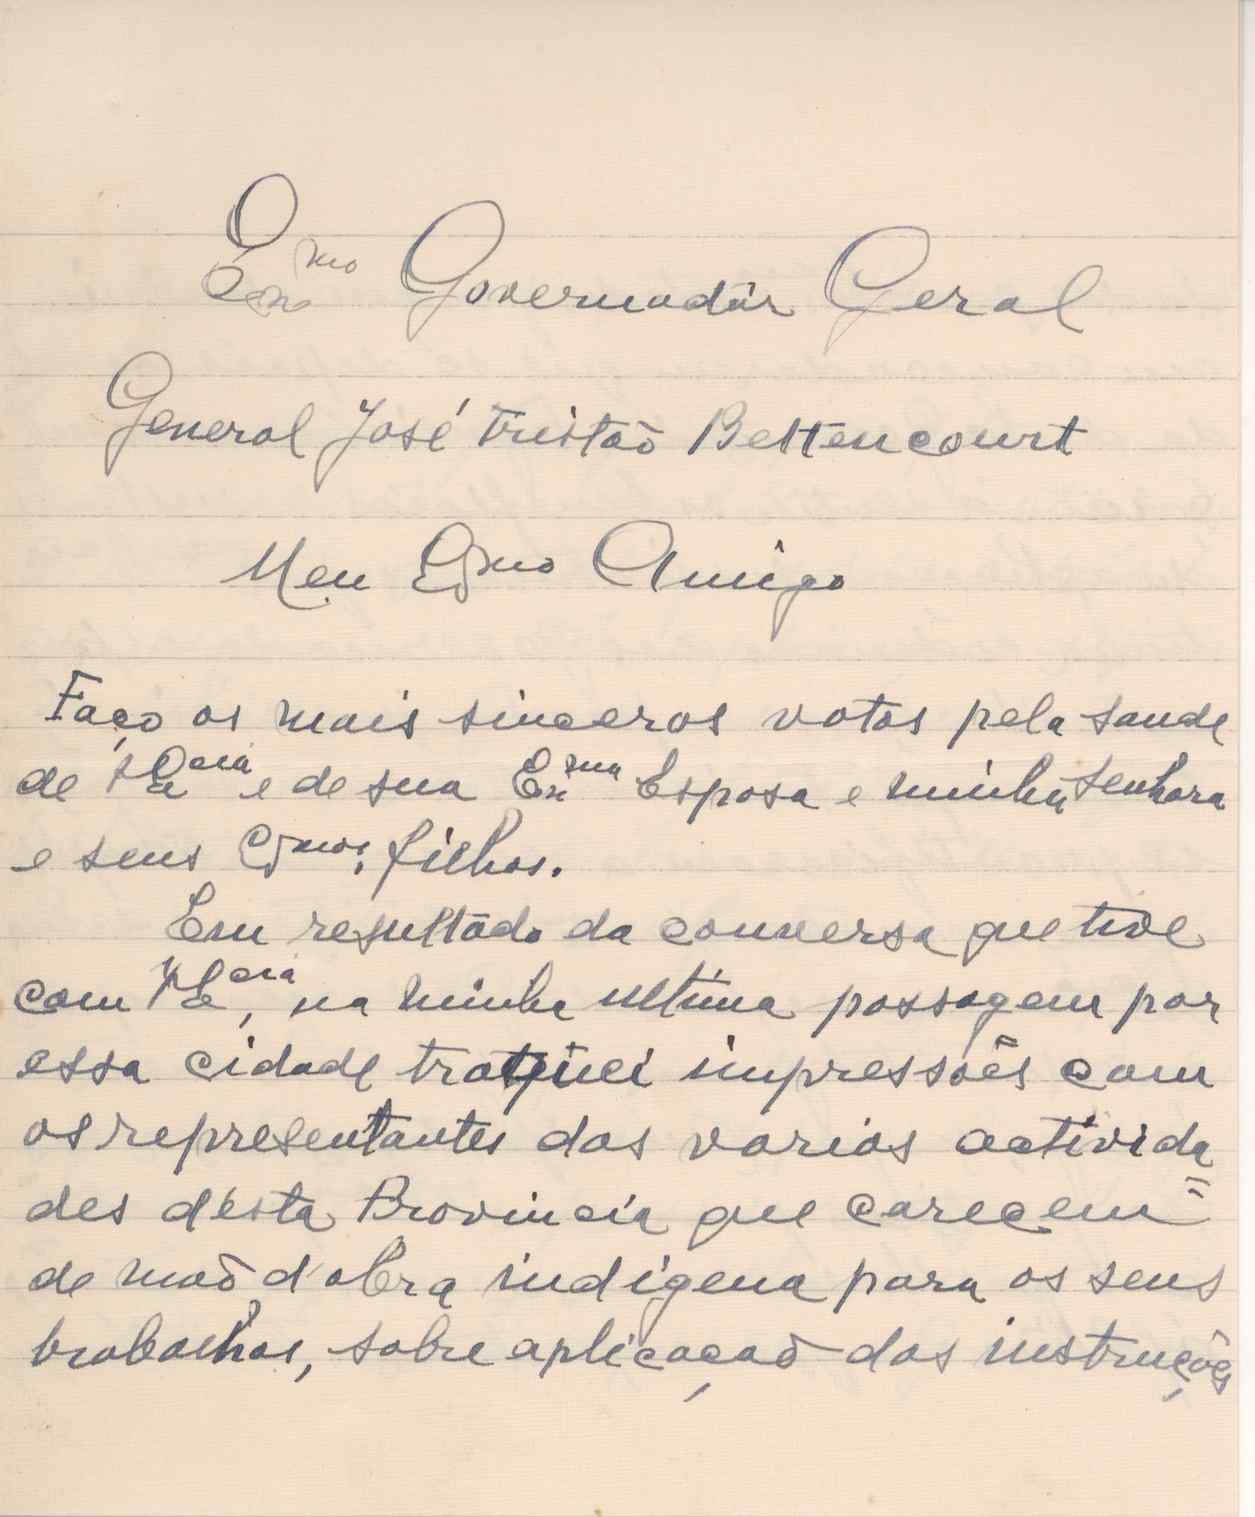 Exmo Governadôr Geral
General José Tristaõ Bettencourt
Meu Exmo Amigo
Faço os mais sinceros votos pela saude
de V Excia e de sua Exma Esposa e minha Senhora
e seus Exmos. filhos.
Em resultado da conversa que tive
com V Excia, na minha ultima passagem por
essa cidade troquei impressões com
os representantes das varias activida
des d'esta Provincia que carecem
de maõ d'obra indigena para os seus
trabalhos, sobre aplicaçaõ das instruções